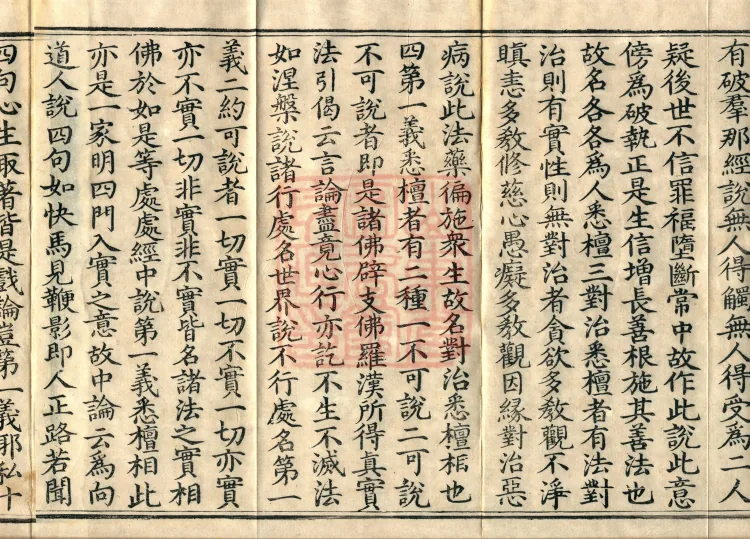 有破羣那經說無人得觸無人得受爲二人
疑後世不信罪福墮斷常中故作此說此意
傍爲破執正是生信增長善根施其善法也
故名各各爲人悉檀三對治悉檀者有法對
治則有實性則無對治者貪欲多教觀不淨
瞋恚多教修慈心愚癡多教觀因緣對治惡
病說此法藥徧施衆生故名對治悉檀相也
四第一義悉檀者有二種一不可說二可說
不可說者即是諸佛辟支佛羅漢所得真實
法引偈云言論盡竟心行亦訖不生不滅法
如涅槃說諸行處名世界說不行處名第一
義二約可說者一切實一切不實一切亦實
亦不實一切非實非不實皆名諸法之實相
佛於如是等處處經中說第一義悉檀相此
亦是一家明四門入實之意故中論云爲向
道人說四句如快馬見鞭影即入正路若聞
四句心生取著皆是戲論豈第一義耶私十